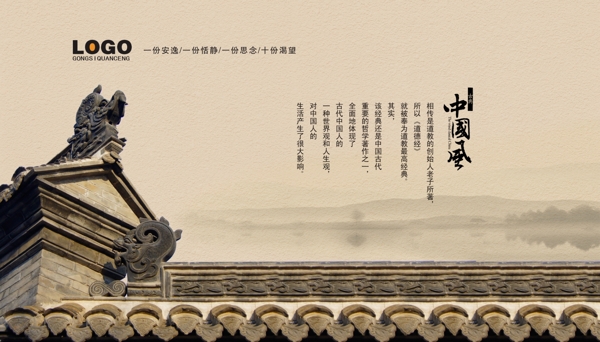 LOGO
GONGS I QUANCENG
一份安逸/一份恬静/一份思念/十份渴望
中國风
相传是道教的创始人老子所著,
所以《道德经》
就被奉为道教最高经典。
其实,
该经典还是中国古代
重要的哲学著作之一,
全面地体现了
古代中国人的
一种世界观和人生观,
对中国人的
生活产生了很大影响。